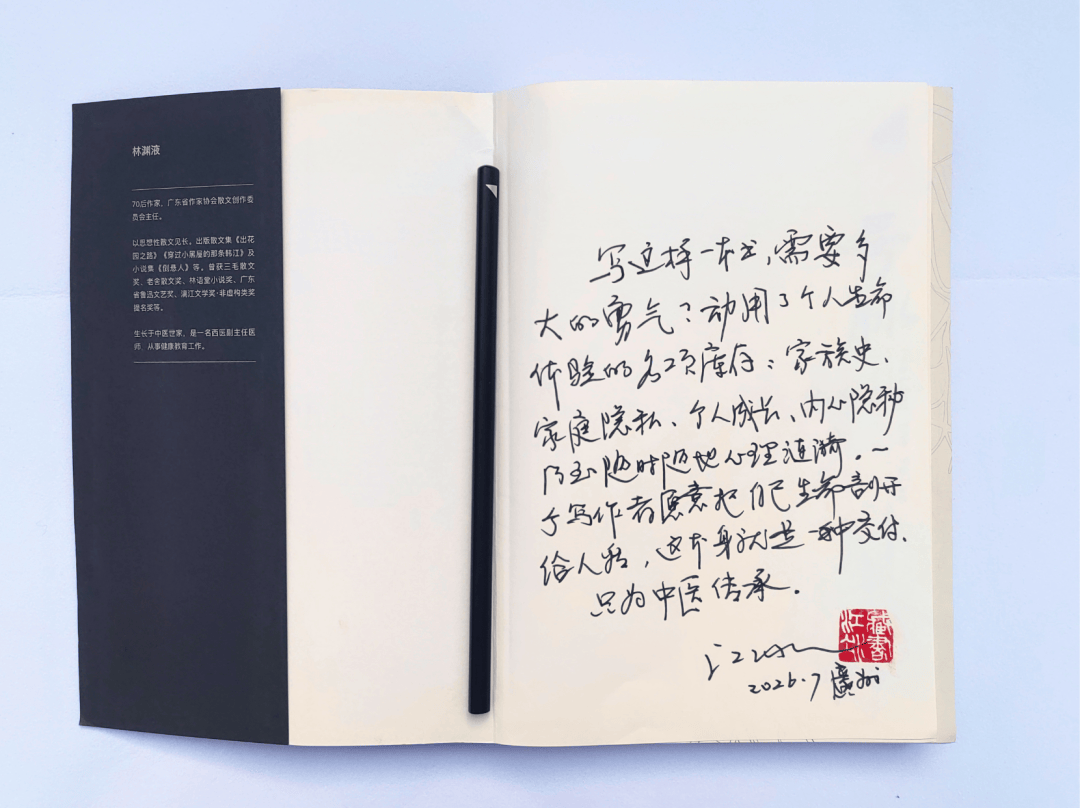 林渊液
70后作家，广东省作家协会散文创作委
员会主任。
以思想性散文见长。出版散文集《出花
园之路》《穿过小黑屋的那条韩江》及
小说集《倒悬人》等。曾获三毛散文
奖、老舍散文奖、林语堂小说奖、广东
省鲁迅文艺奖、漓江文学奖·非虚构类奖
提名奖等。
生长于中医世家，是一名西医副主任医
师，从事健康教育工作。
写这样一本书，需要多
大的勇气？动用了个人生命
体验的各项库存：家族史、
家庭隐私、个人成长、内心隐秘
乃至随时随地心理涟漪。一
个写作者愿意把自己生命剖开
给人看，这本身就是一种交付，
只为中医传承。
江
藏书
2026.7 廣州